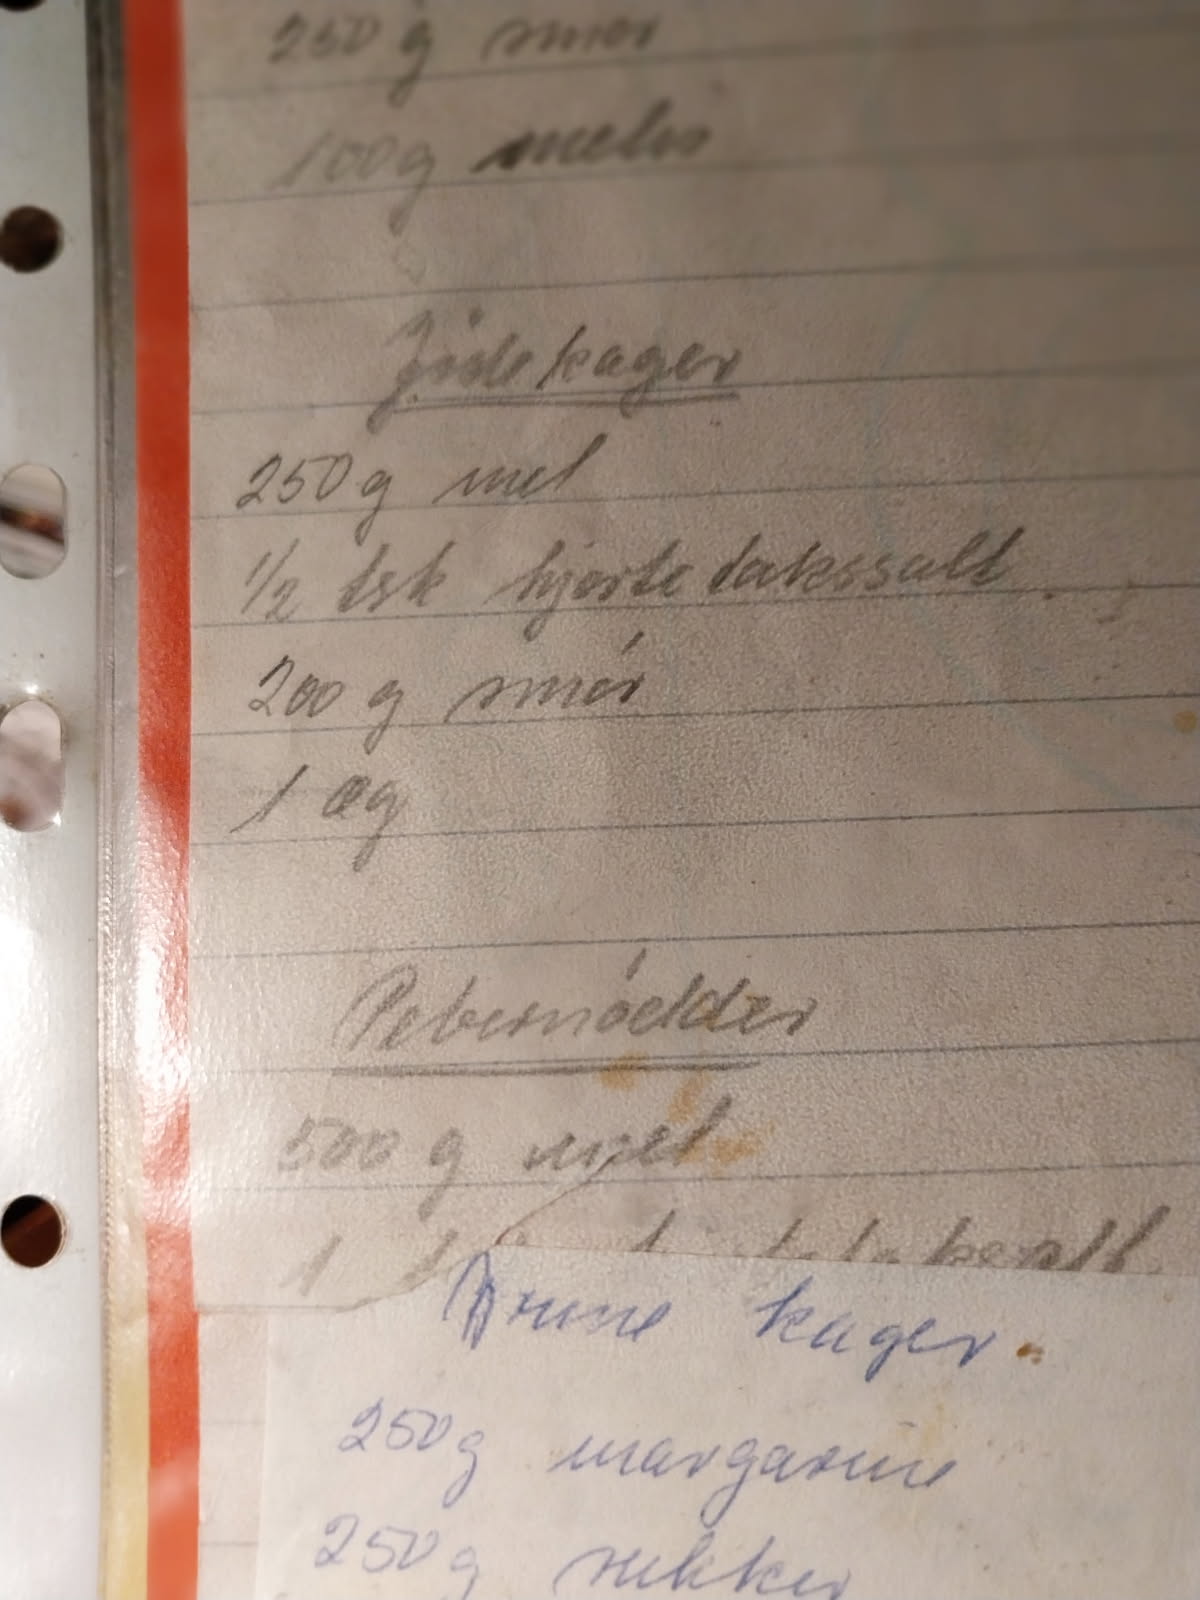 250 g smør
100g melis
Jødekager
250 g mel
1/2 tsk hjortetakssalt
200 g smør
1 æg
Pebernødder
500 g mel
1
Brune kager
250 g margarine
250 g sukker